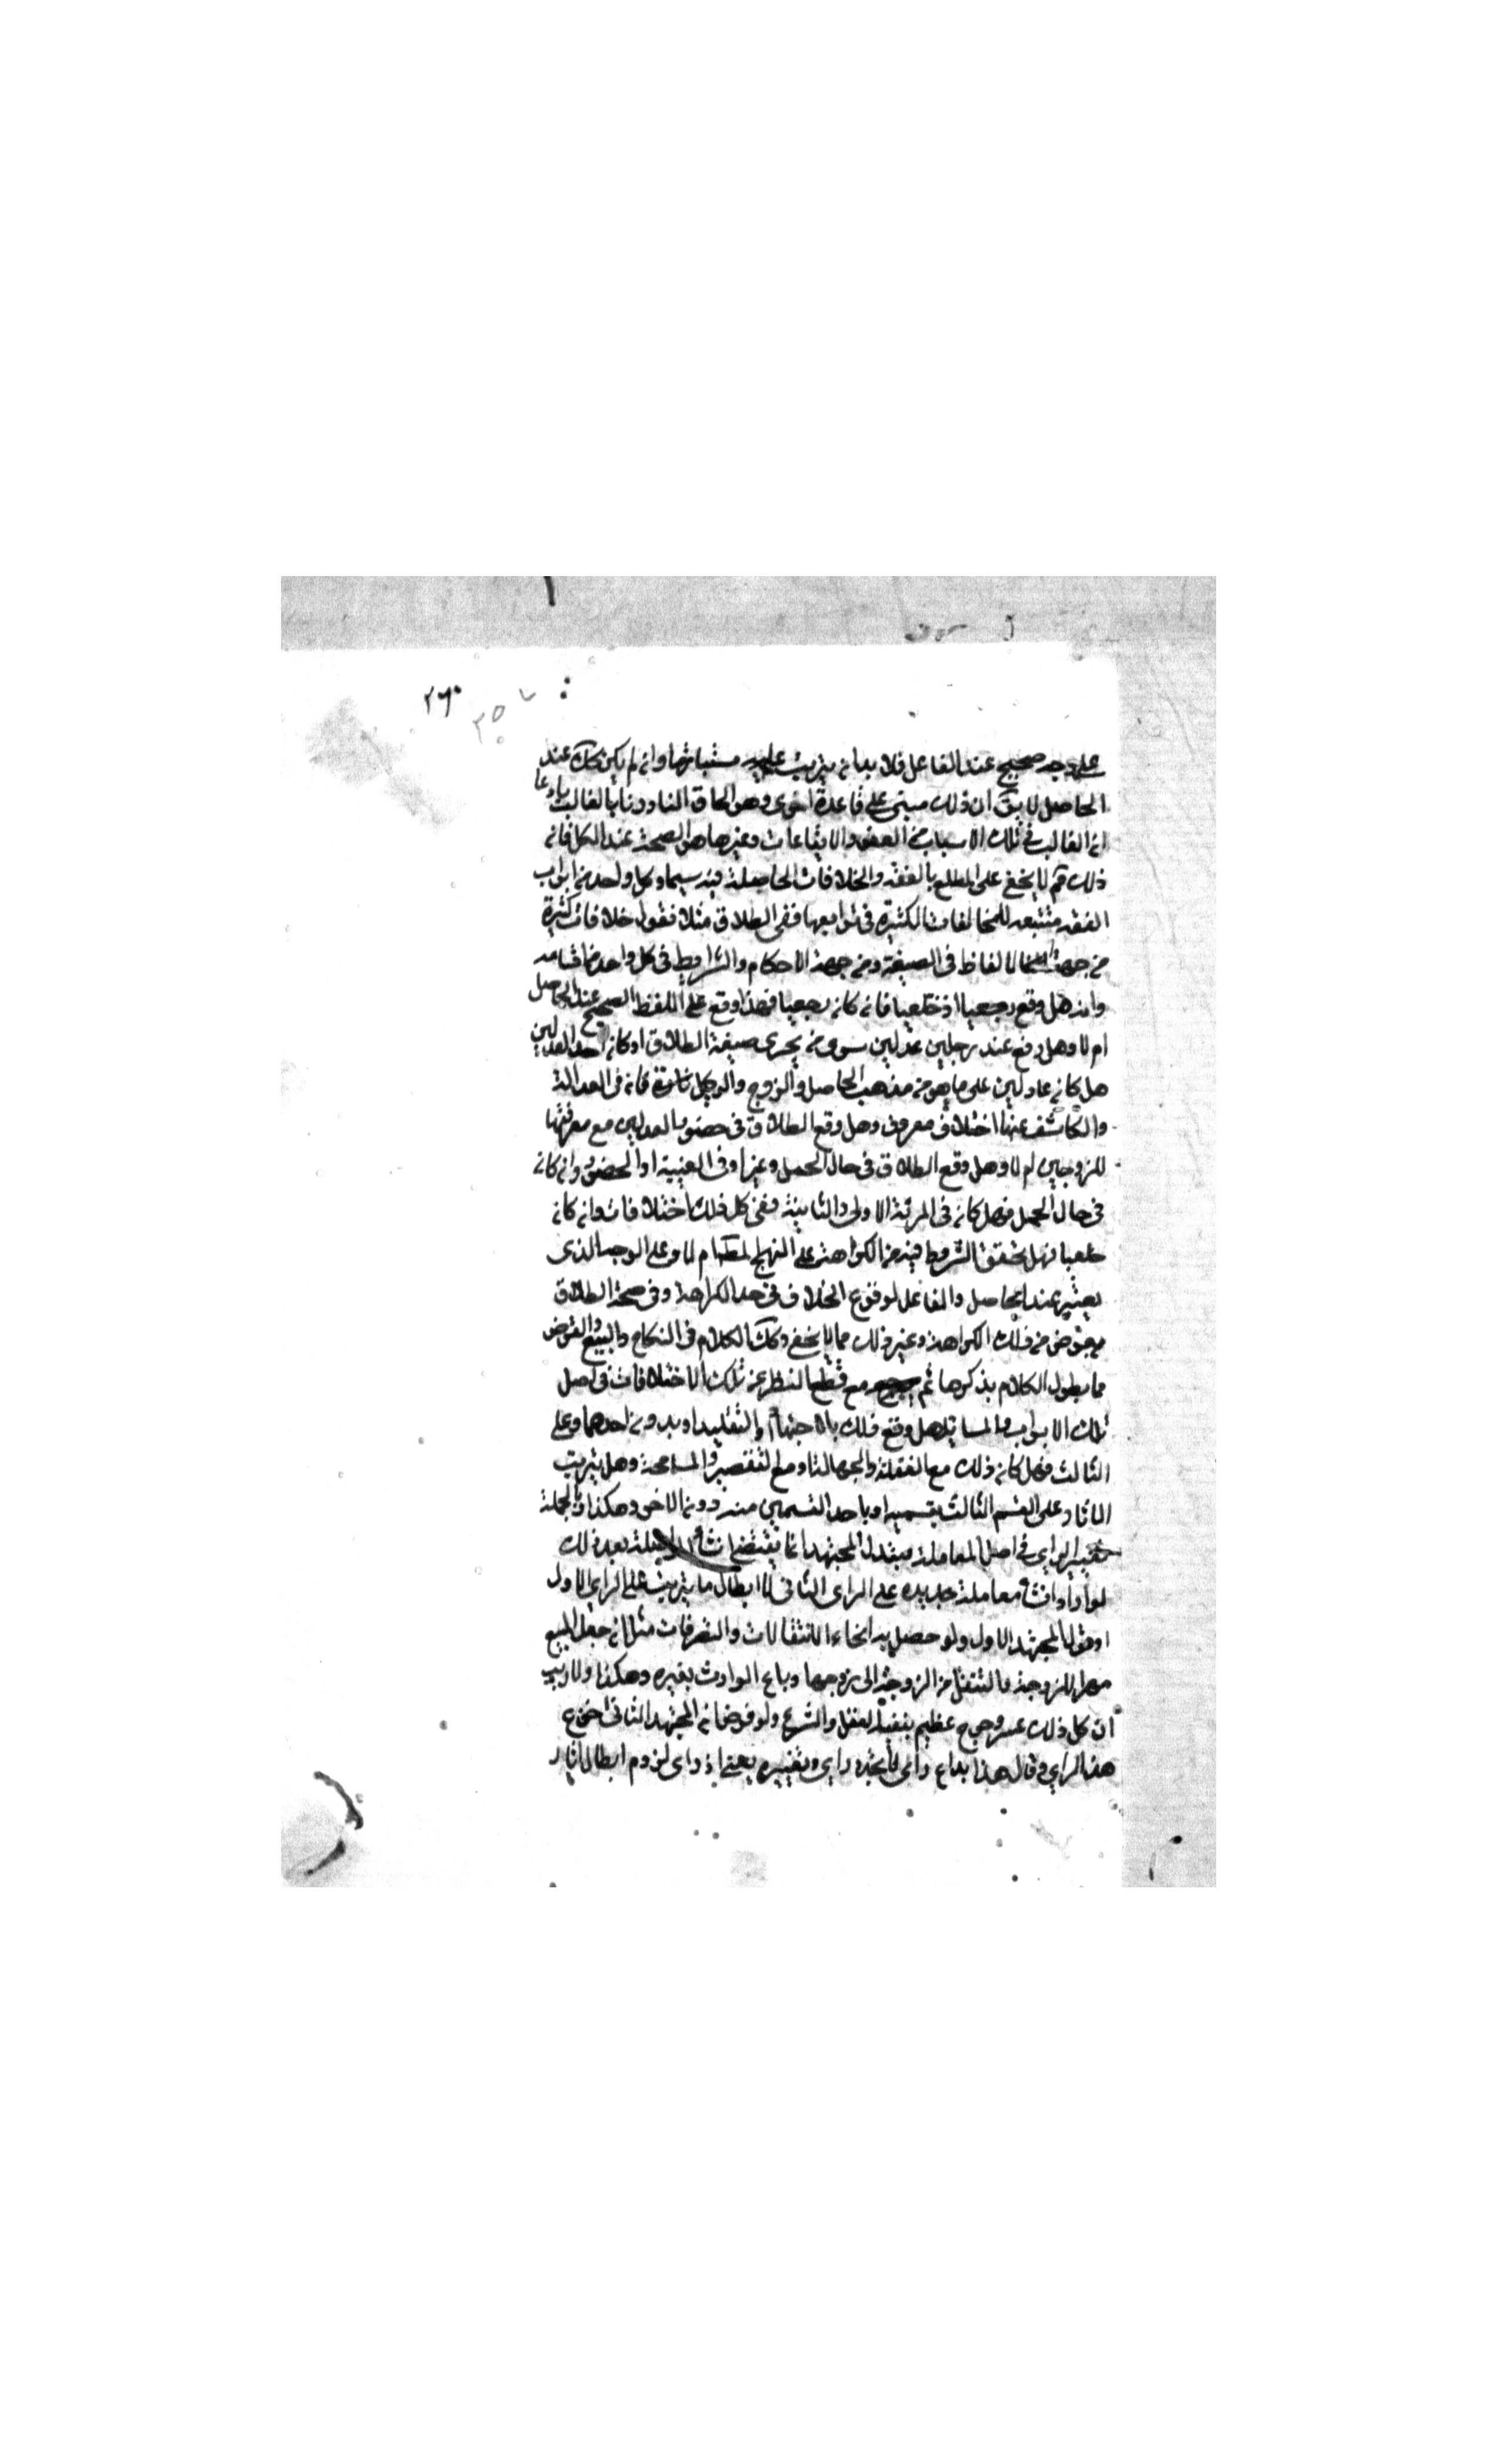 ٢٦٠
٢٥٧
على وجه صحيح عند الفاعل فلا بد ان يترتب عليه مسبباتها وان لم يكن كك عند
الحاصل لا يق ان ذلك مبنى على قاعدة اخرى وهو الحاق النادر بالغالب بادعا
ان الغالب في تلك الاسباب من العقود والايقاعات وغيرها هو الصحة عند الكل فان
ذلك مم لا يخفى على المطلع بالفقه والخلافات الحاصلة فيه سيما وكل واحد من ابواب
الفقه متتبعه للمخالفات الكثيرة في توابعها ففى الطلاق مثلا نقول خلافات كثيرة
من جهة الالفاظ فى الصيغة ومن جهة الاحكام والشروط فى كل واحد من اقسامه
وانه هل وقع رجعيا او خلعيا فان كان رجعيا فهذا وقع على اللفظ الصحيح عند الحاصل
ام لا وهل وقع عند رجلين عدلين سوى من يجرى صيغة الطلاق او كان احد العدلين
هل كان عادلين على ما هو من مذهب الحاصل والزوج والوكيل فان فى العدالة
والكاشف عنها اختلاف معروف وهل وقع الطلاق فى حضور العدلين مع معرفتها
للزوجين ام لا وهل وقع الطلاق فى حال الحمل وغيره او فى الغيبة او الحضور وان كان
فى حال الحمل فهل كان فى المرتبة الاولى والثانية ففى كل ذلك اختلافات وان كان
خلعيا فهل تحقق الشروط فيه من الكراهة على النهج ام لا وعلى الوجه الذى
يعتبر عند الحاصل والفاعل لوقوع الخلاف فى حد الكراهة وفى صحة الطلاق
بعوض من ذلك الكراهة وغير ذلك مما لا يخفى وكك الكلام فى النكاح والبيع والقرض
مما يطول الكلام بذكرها ثم مع قطع النظر عن تلك الاختلافات فى اصل
تلك الابواب والمسائل هل وقع ذلك بالاجتهاد او التقليد او بدون احدهما وعلى
الثالث فهل كان ذلك مع الغفلة والجهالة او مع التقصير والمسامحة وهل يترتب
الاثار على القسم الثالث بقسميه او باحد القسمين منه دون الاخر وهكذا وبالجملة
تغيير الراى فى اصل المعاملة بتبدل المجتهد انما يقتضى بعد ذلك
لو اراد انشاء معاملة جديدة على الراى الثانى لا ابطال ما يترتب على الراى الاول
او قول المجتهد الاول ولو حصل به انحاء الانتقالات والتصرفات مثل ان جعل المبيع
مهرا للزوجة فانتقل من الزوجة الى زوجها وباع الوارث بغيره وهكذا ولا ريب
ان كل ذلك عسر وحرج عظيم ينفيه العقل والشرع ولو فرض ان المجتهد الثانى اخترع
هذا الراى وقال هذا بداع راى لا تجدد راى وتغييره يعنى اذ راى لزوم ابطال اثار